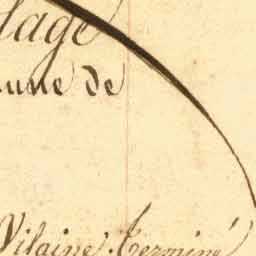 lage
une de
Vilaine. Terminé